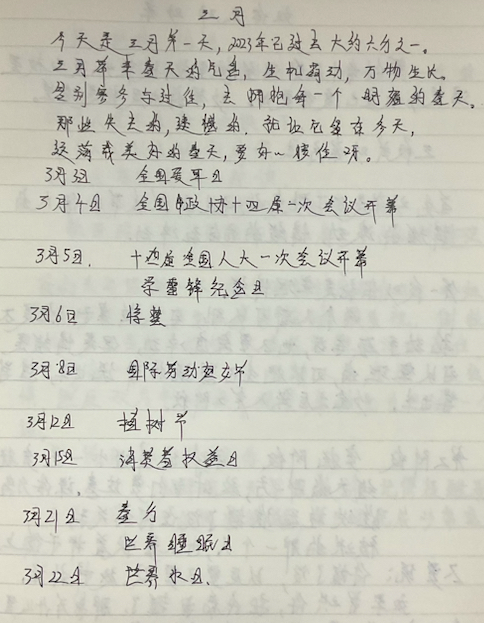 三月
今天是三月第一天，2023年已过去大约六分之一。
三月带来春天的气息，生机萌动，万物生长。
告别寒冬与过往，去拥抱每一个明媚的春天。
那些失去的，遗憾的，就让它留在冬天，
热爱的春天，要好~接住呀。
3月3日 全国爱耳日
3月4日 全国政协十四届一次会议开幕
3月5日. 十四届全国人大一次会议开幕
学雷锋纪念日
3月6日 惊蛰
3月8日 国际劳动妇女节
3月12日 植树节
3月15日 消费者权益日
3月21日 春分
世界睡眠日
3月22日 世界水日.